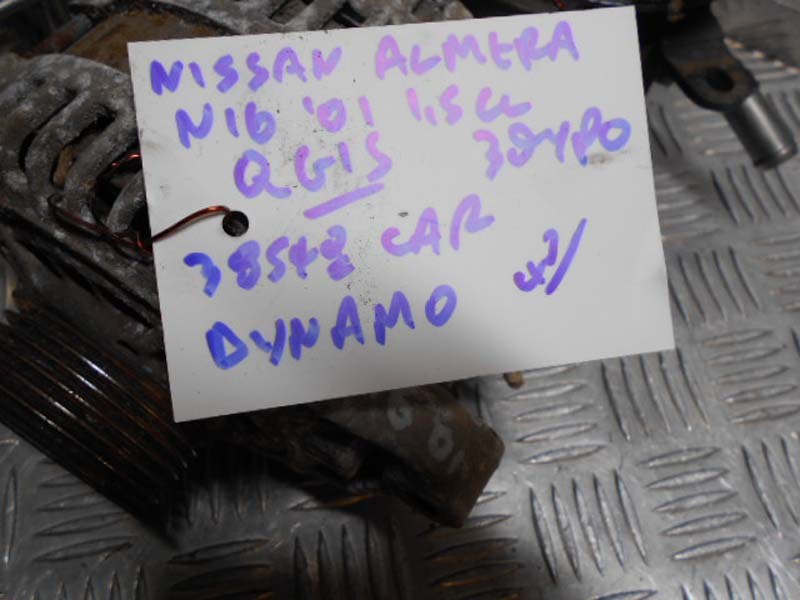 NISSAN ALMERA
N16 '01 1.5 CC
QG15
38548 CAR
DYNAMO